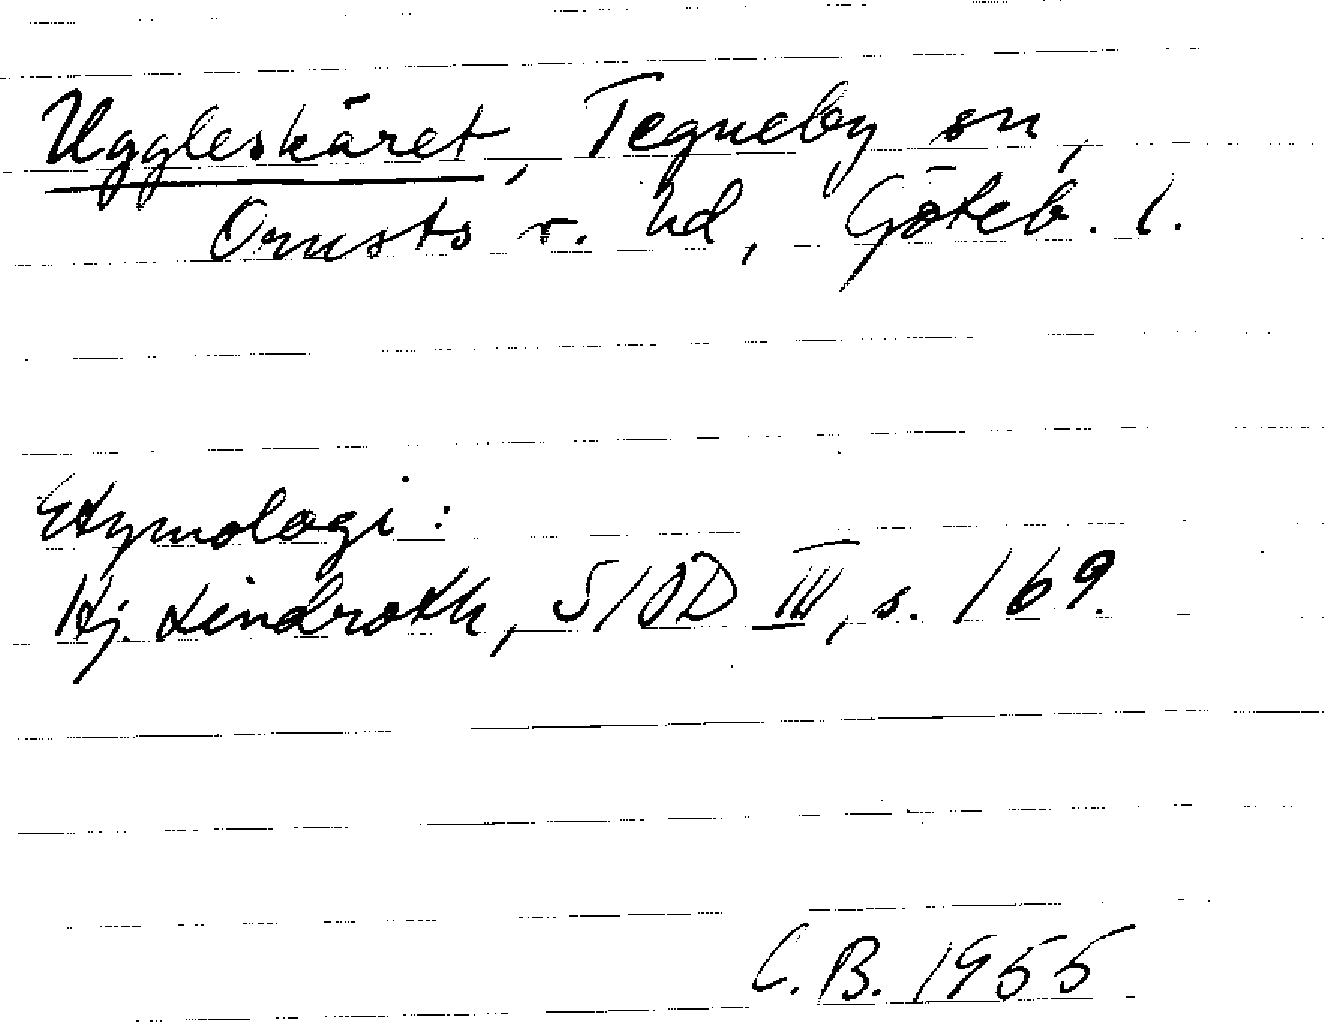 Uggleskäret, Tegneby sn,
Orusts v. hd, Göteb. l.
Etymologi:
Hj. Lindroth, SIOD III, s. 169.
C.B. 1955